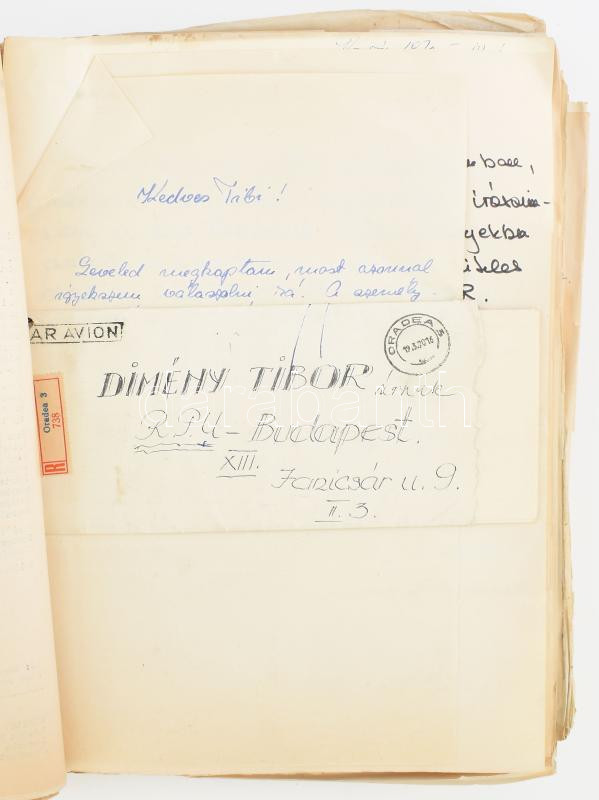 Kedves Tibi!
Leveled megkaptam, most azonnal
igyekszem válaszolni rá. A személy-
mban,
írásaim-
yekba
R.
PAR AVION
ORADEA 3
Oradea 3
738
R
DIMÉNY TIBOR
R.P.U - Budapest.
XIII.
Janicsár u. 9.
II. 3.
darabanth